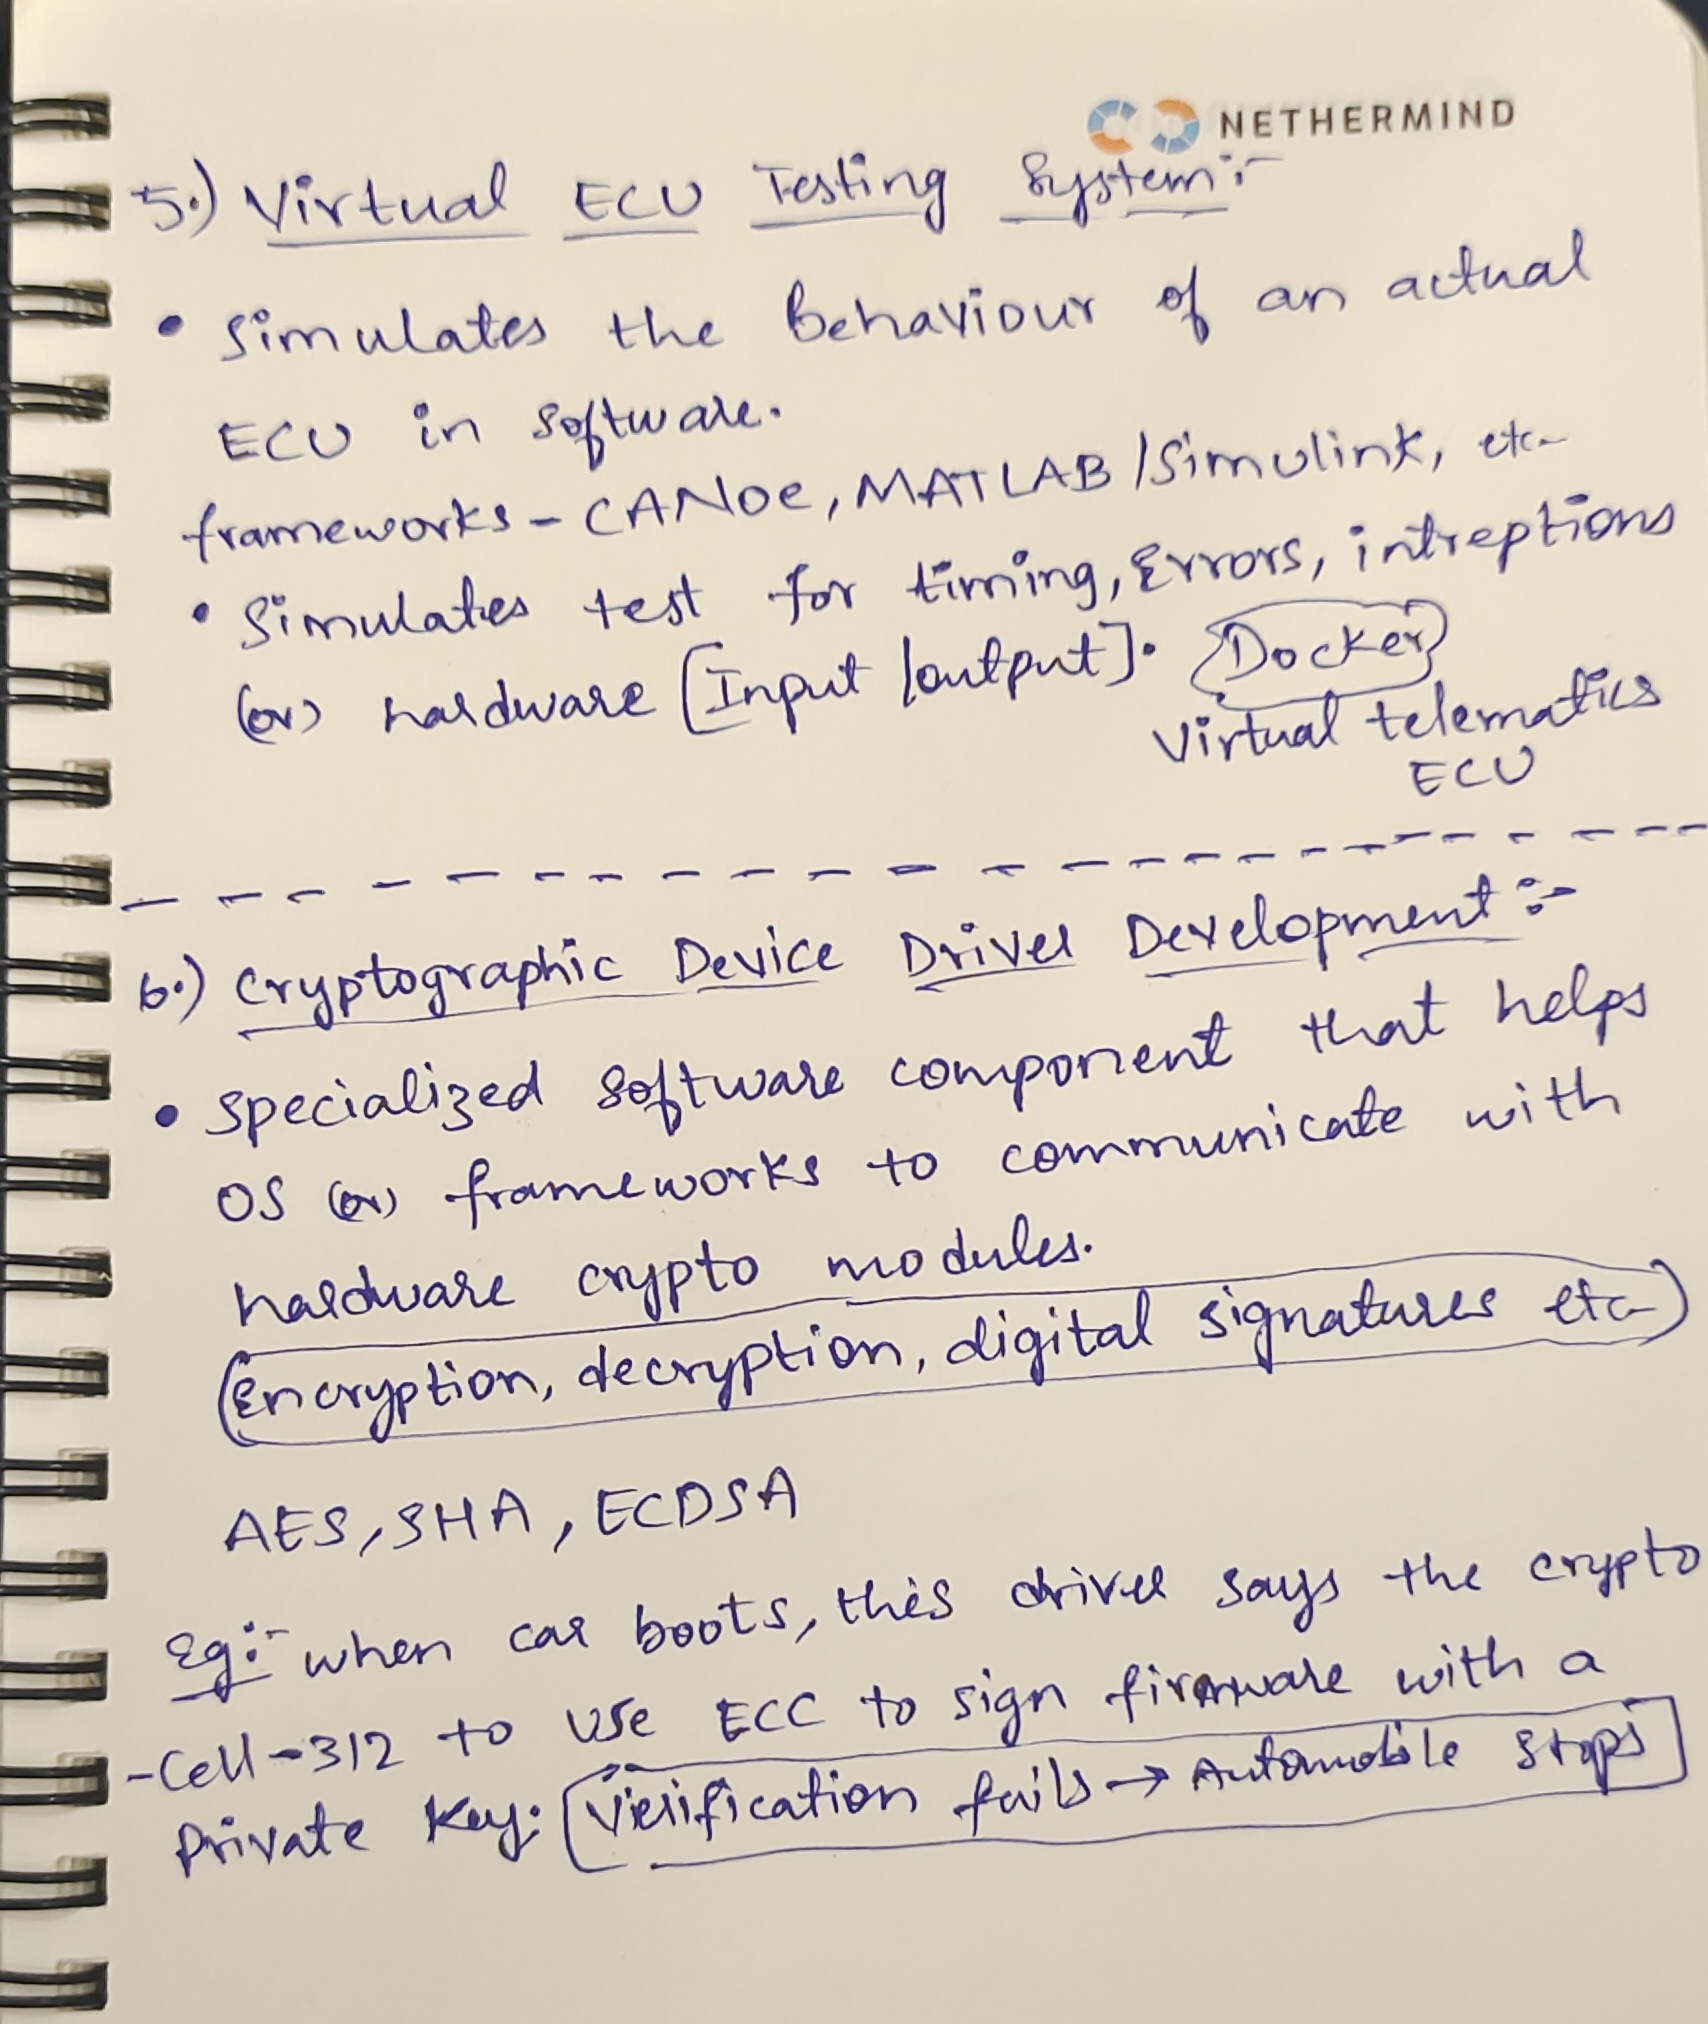 NETHERMIND
5.) Virtual ECU Testing System:-
• Simulates the Behaviour of an actual
ECU in software.
frameworks - CANoe, MATLAB/Simulink, etc-
• Simulates test for timing, Errors, intreptions
(or) hardware [Input/output]. {Docker}
Virtual telematics
ECU
6.) Cryptographic Device Driver Development:-
• Specialized software component that helps
OS (or) frameworks to communicate with
hardware crypto modules.
(Encryption, decryption, digital signatures etc-)
AES, SHA, ECDSA
Eg:- when car boots, this driver says the crypto
-Cell-312 to use ECC to sign firmware with a
Private Key: [Verification fails → Automobile stops]